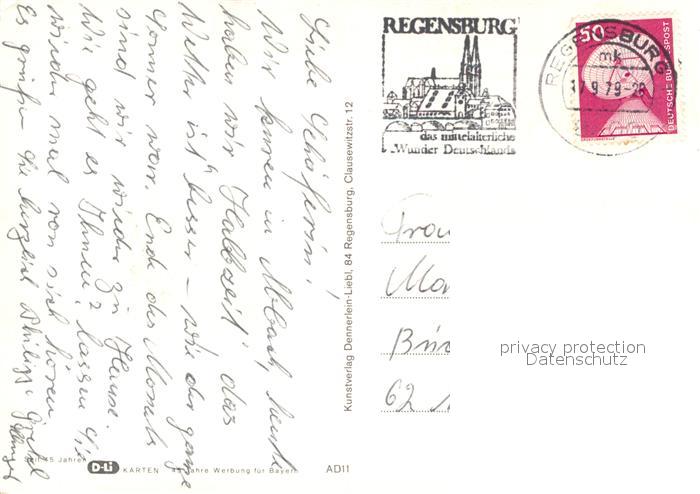 Liebe Schäferin!
Wir kuren in Abbach, heute
haben wir "Halbzeit" das
Wetter ist besser – wie der ganze
Sommer war. Ende des Monats
sind wir wieder zu Hause.
Wie geht es Ihnen? Lassen Sie
wieder mal von sich hören.
Es grüßen Sie herzlich Philipp
Seit 45 Jahren
D-Li KARTEN
45 Jahre Werbung für Bayern
AD11
Kunstverlag Dennerlein-Liebl, 84 Regensburg, Clausewitzstr. 12
REGENSBURG
das mittelalterliche
Wunder Deutschlands
REGENSBURG
mk
17.9.79
50
DEUTSCHE BUNDESPOST
Frau
62
privacy protection
Datenschutz